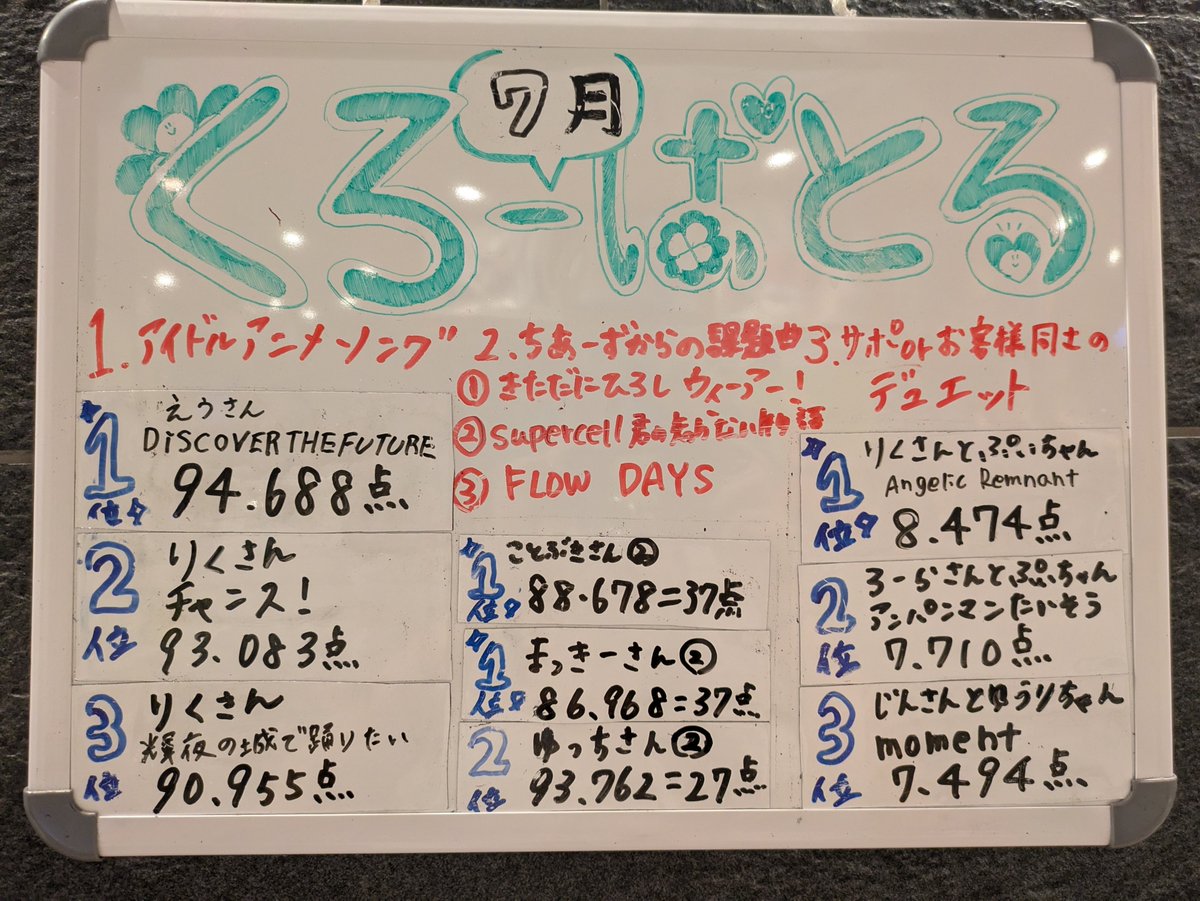 7月
くろーばとる
1. アイドルアニメソング
1位 えうさん
DiSCOVER THE FUTURE
94.688点
2位 りくさん
チャンス!
93.083点
3位 りくさん
輝夜の城で踊りたい
90.955点
2. ちあーずからの課題曲
① きただにひろし ウィーアー!
② supercell 君の知らない物語
③ FLOW DAYS
1位 ことぶきさん②
88.678=37点
1位 まっきーさん②
86.968=37点
2位 ゆっちさん②
93.762=27点
3. サポorお客様同士の
デュエット
1位 りくさんとぷぃちゃん
Angelic Remnant
8.474点
2位 ろーらさんとぷぃちゃん
アンパンマンたいそう
7.710点
3位 じんさんとゆうりちゃん
moment
7.494点